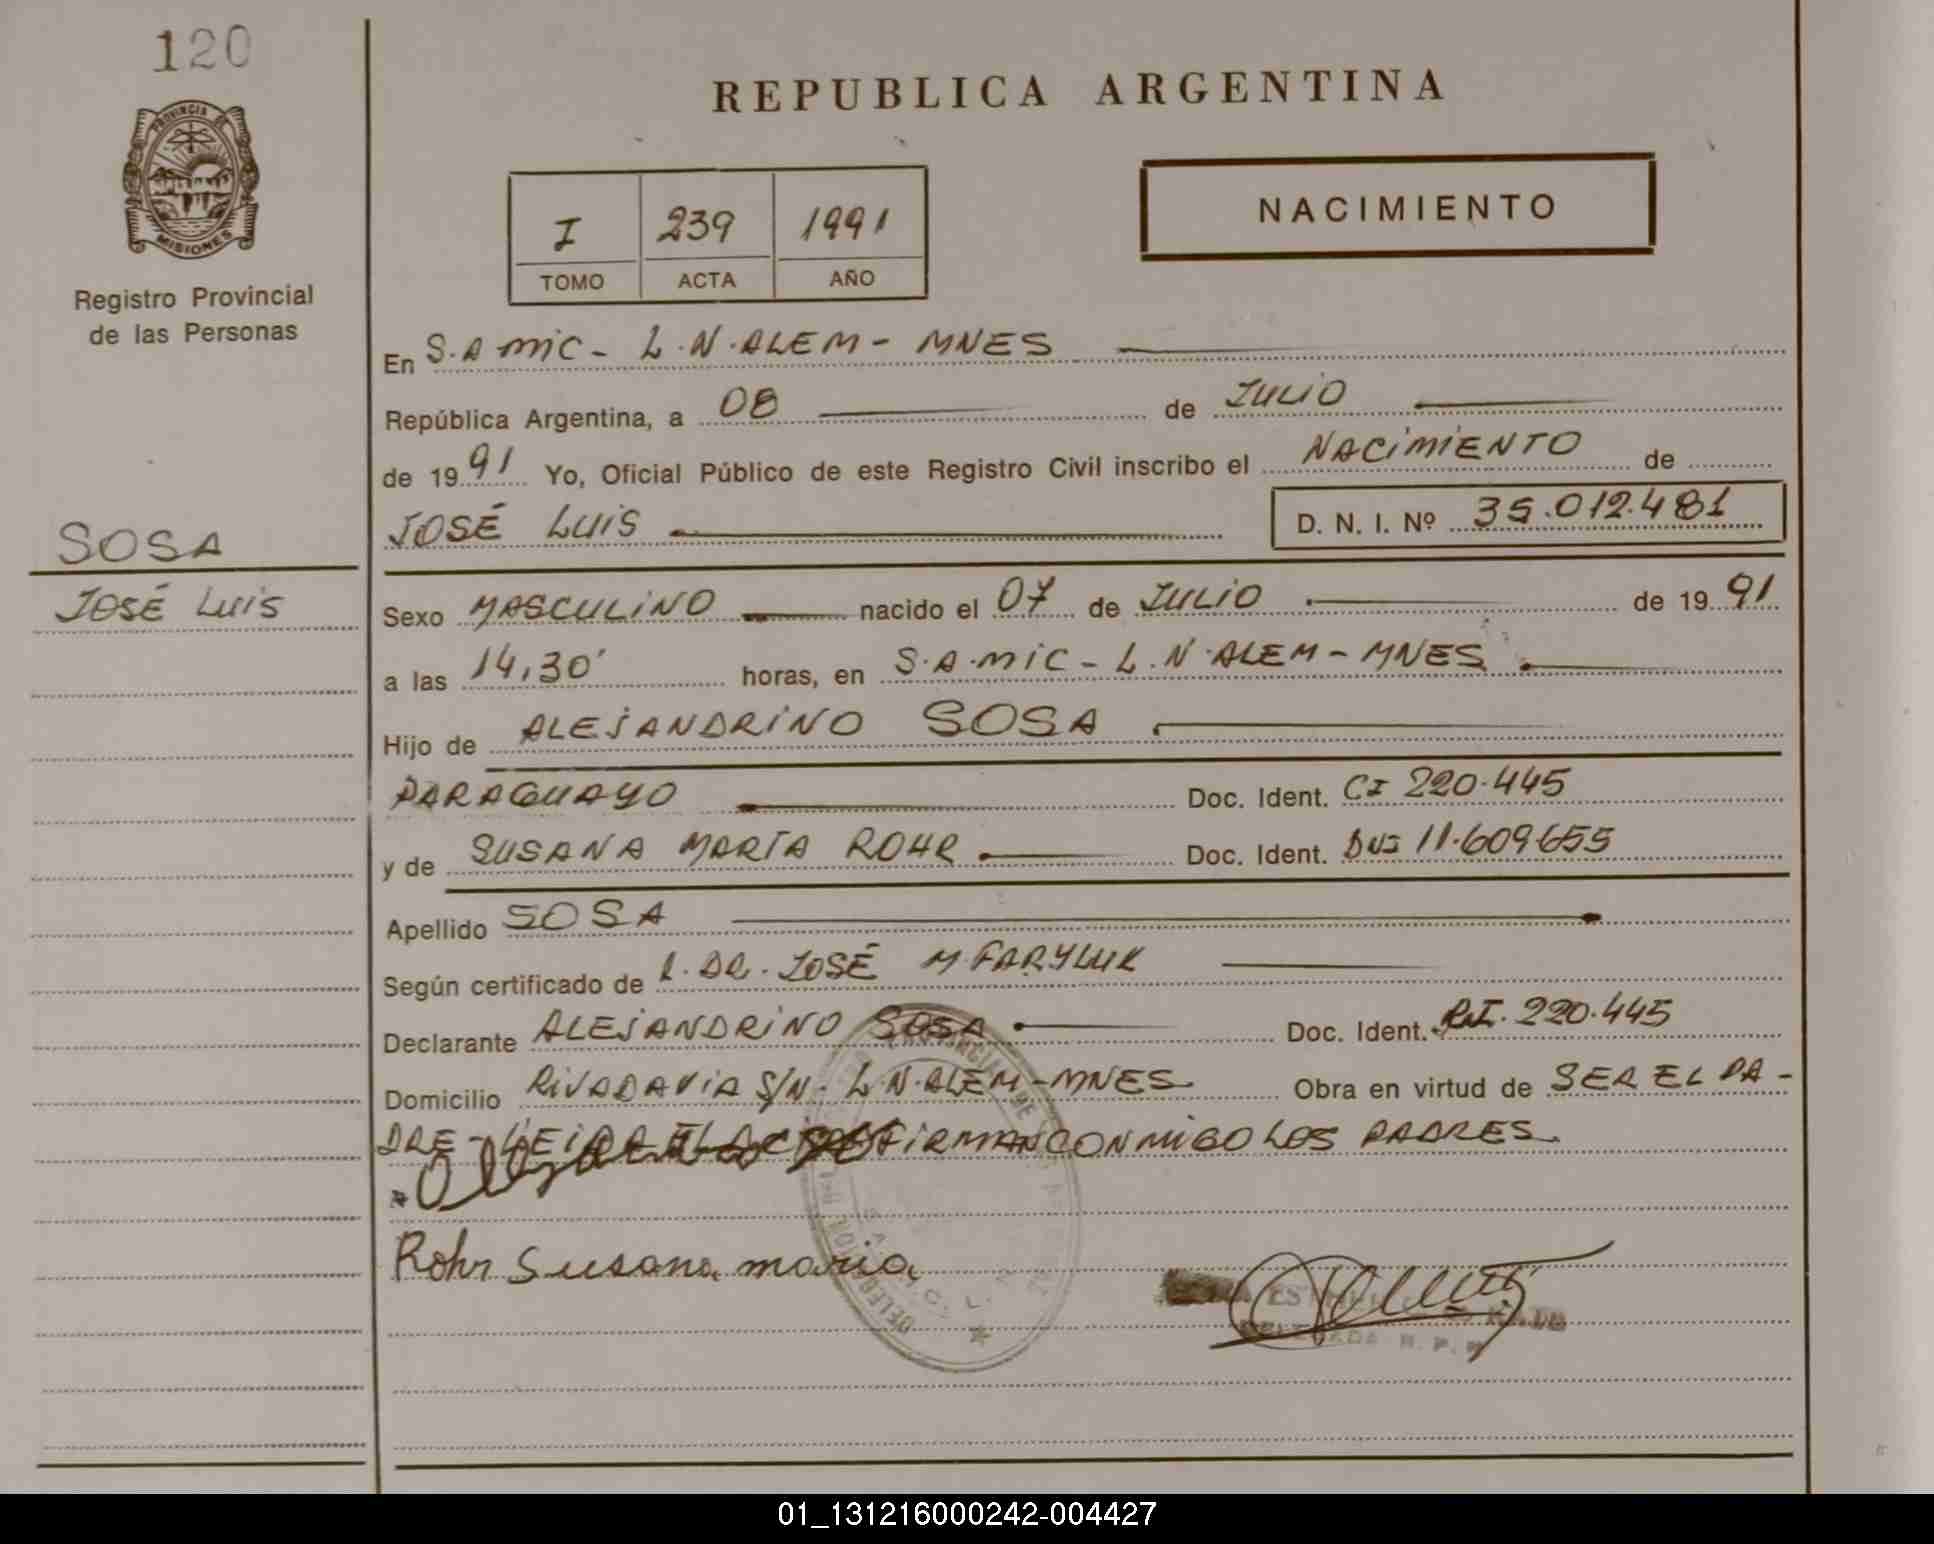 120
PROVINCIA DE
MISIONES
Registro Provincial
de las Personas
SOSA
JOSÉ LUIS
REPUBLICA ARGENTINA
I 239 1991
TOMO ACTA AÑO
NACIMIENTO
En S.A MIC - L.N.ALEM - MNES
República Argentina, a 08 de JULIO
de 1991 Yo, Oficial Público de este Registro Civil inscribo el NACIMIENTO de
JOSÉ LUIS D. N. I. Nº 35.012.481
Sexo MASCULINO nacido el 07 de JULIO de 1991
a las 14,30' horas, en S.A.MIC - L.N.ALEM - MNES
Hijo de ALEJANDRINO SOSA
PARAGUAYO Doc. Ident. CI 220.445
y de SUSANA MARÍA ROHR Doc. Ident. DNI 11.609.655
Apellido SOSA
Según certificado de DR. JOSÉ M FARYLUK
Declarante ALEJANDRINO SOSA Doc. Ident. 220.445
Domicilio RIVADAVIA S/N - L.N.ALEM - MNES Obra en virtud de SER EL PA-
DRE - LEIDA EL ACTA FIRMAN CONMIGO LOS PADRES.
Rohr Susana maria
DELEGADA R. P. P.
01_131216000242-004427